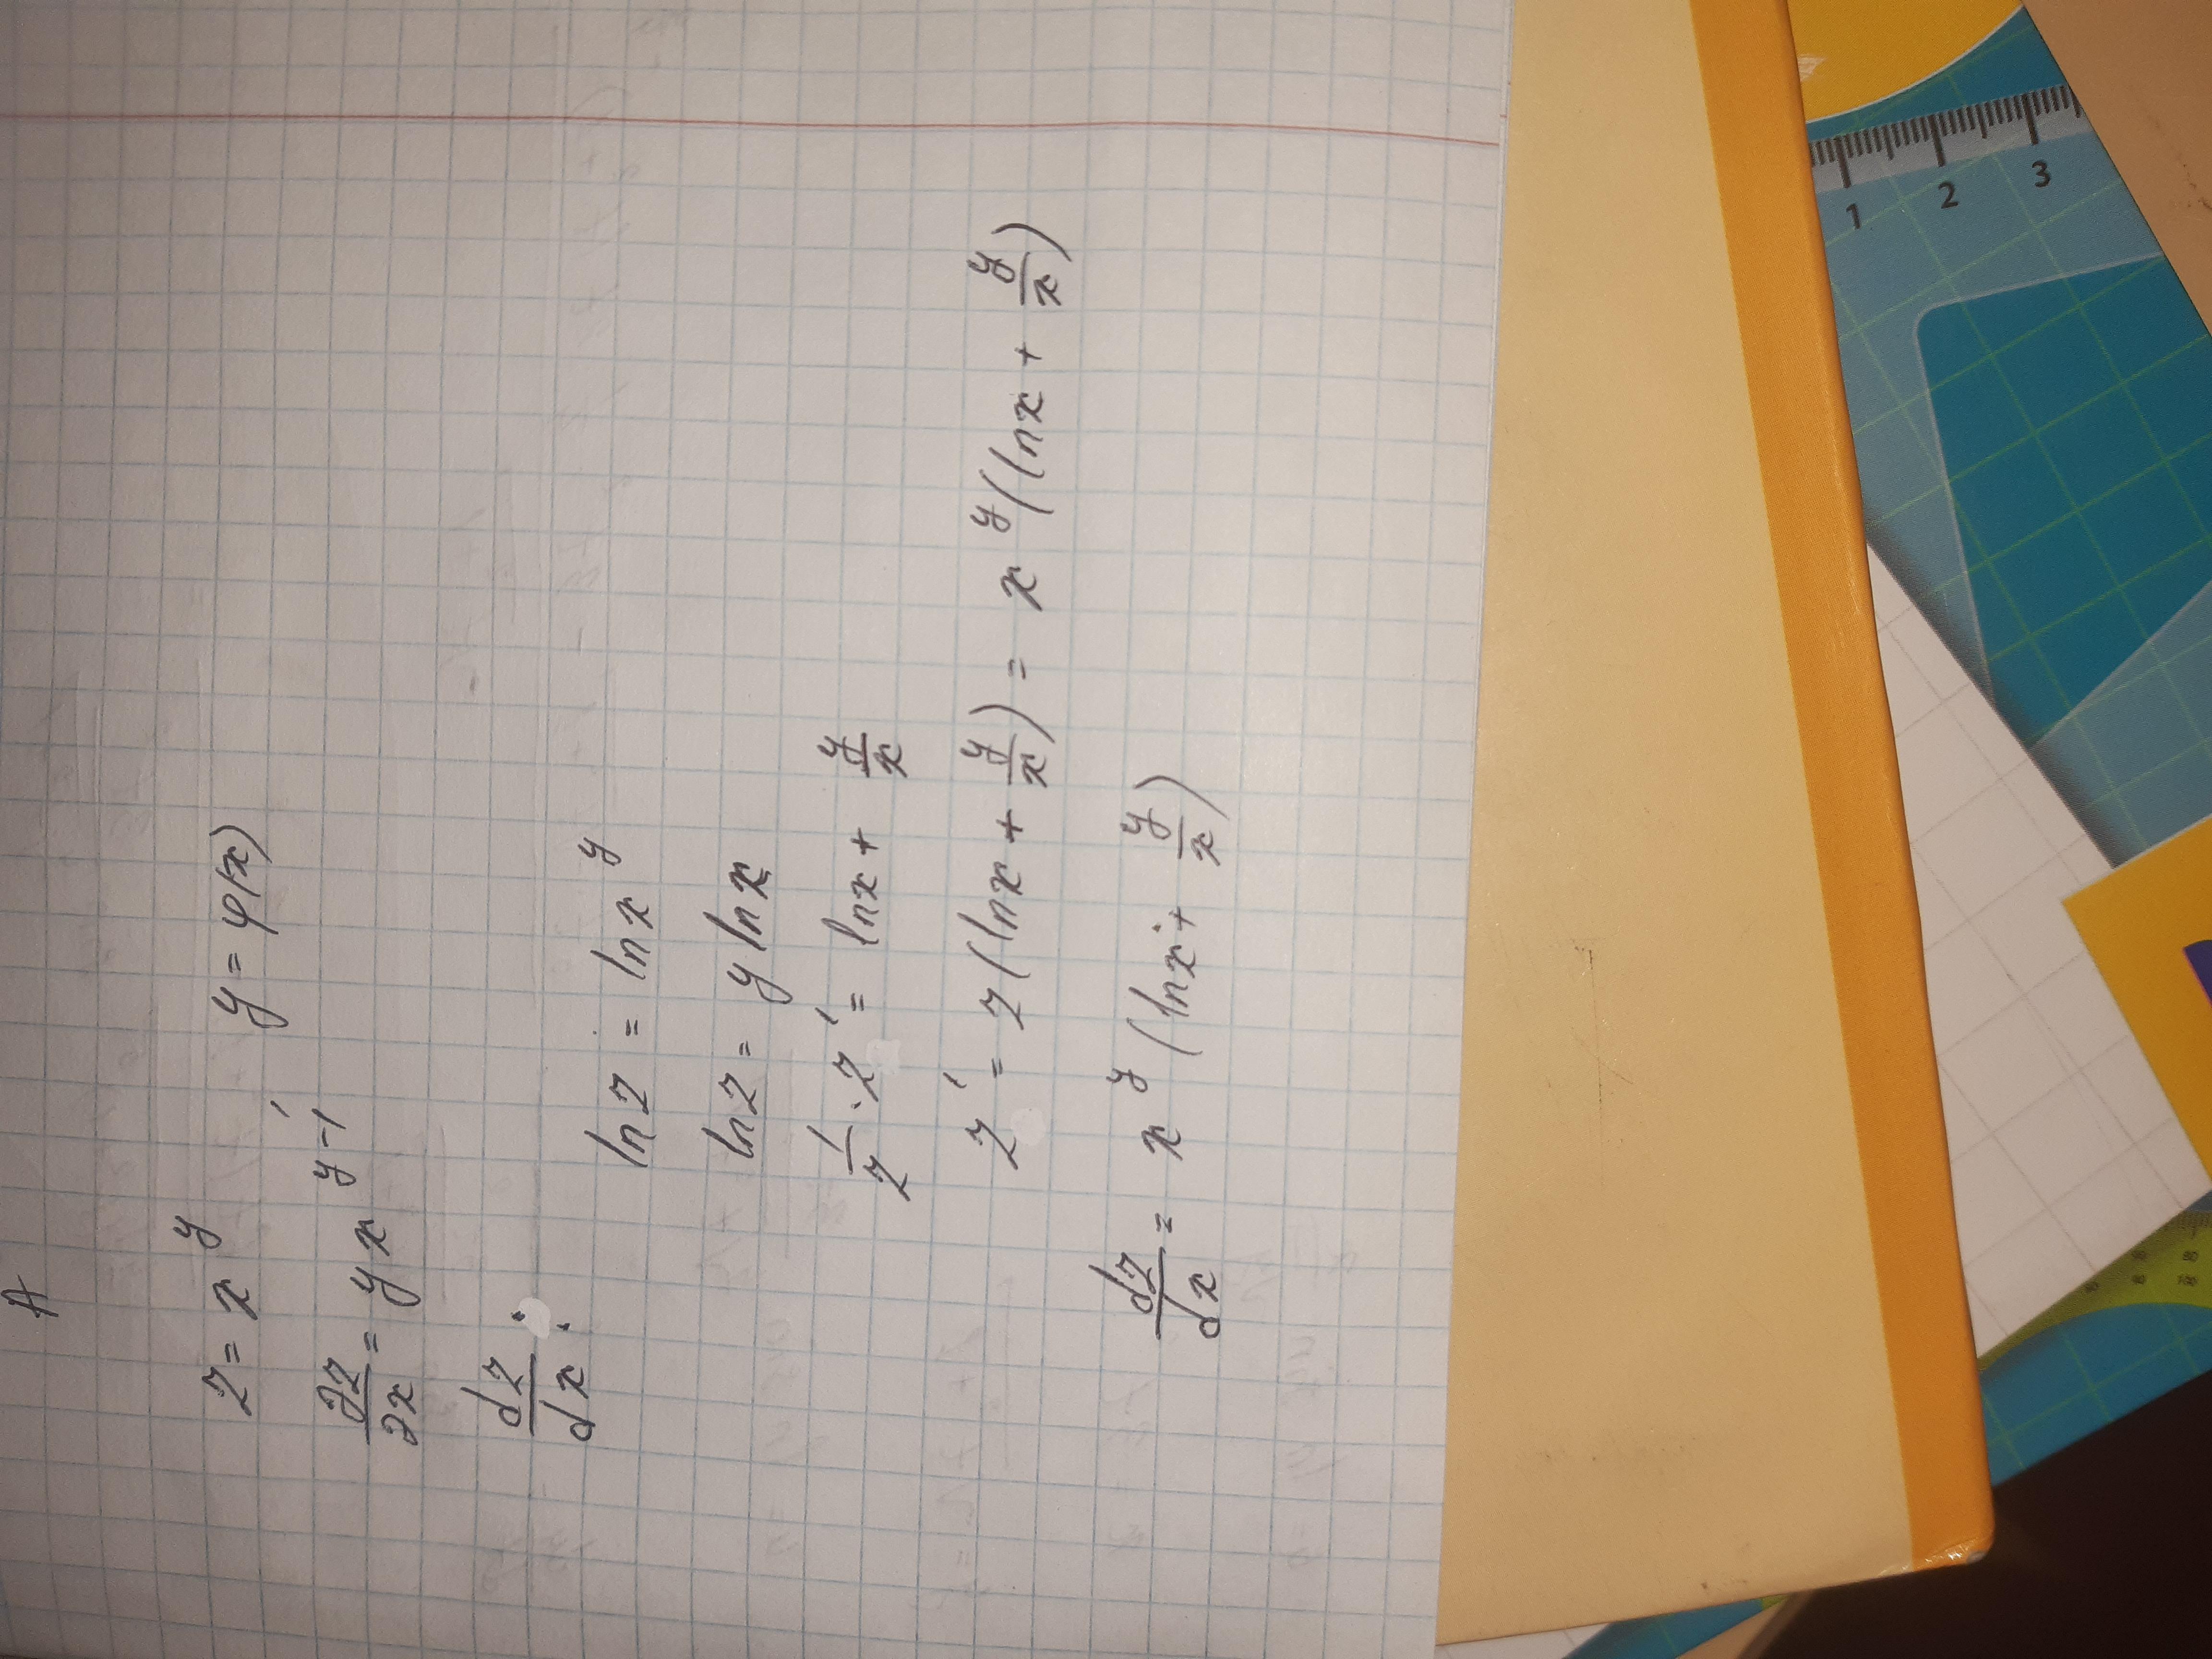 A
z = x^y, y = φ(x)
∂z/∂x = yx^(y-1)
dz/dx:
ln z = ln x^y
ln z = y ln x
1/z · z' = ln x + y/x
z' = z(ln x + y/x) = x^y(ln x + y/x)
dz/dx = x^y(ln x + y/x)
1 2 3